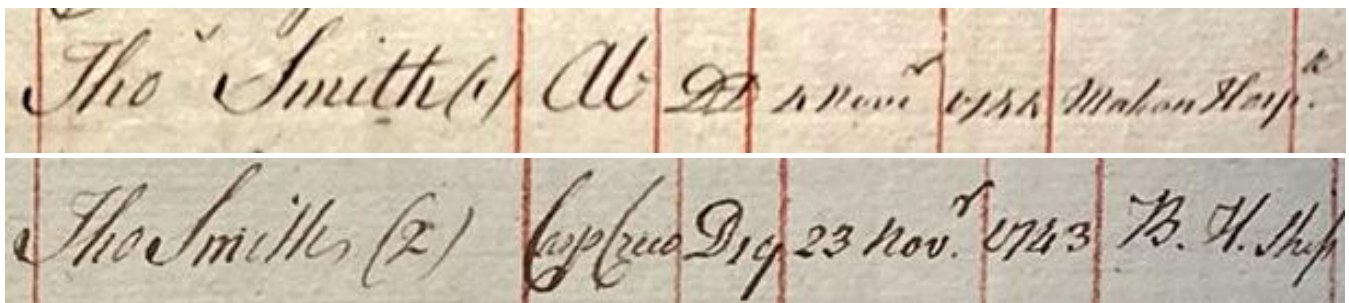 Thoˢ Smith (1) Ab DD 4 Novʳ 1744 Mahon Hospˡ
Tho Smith (2) Carp Crew DSq 23 Novʳ 1743 B. H. Ship